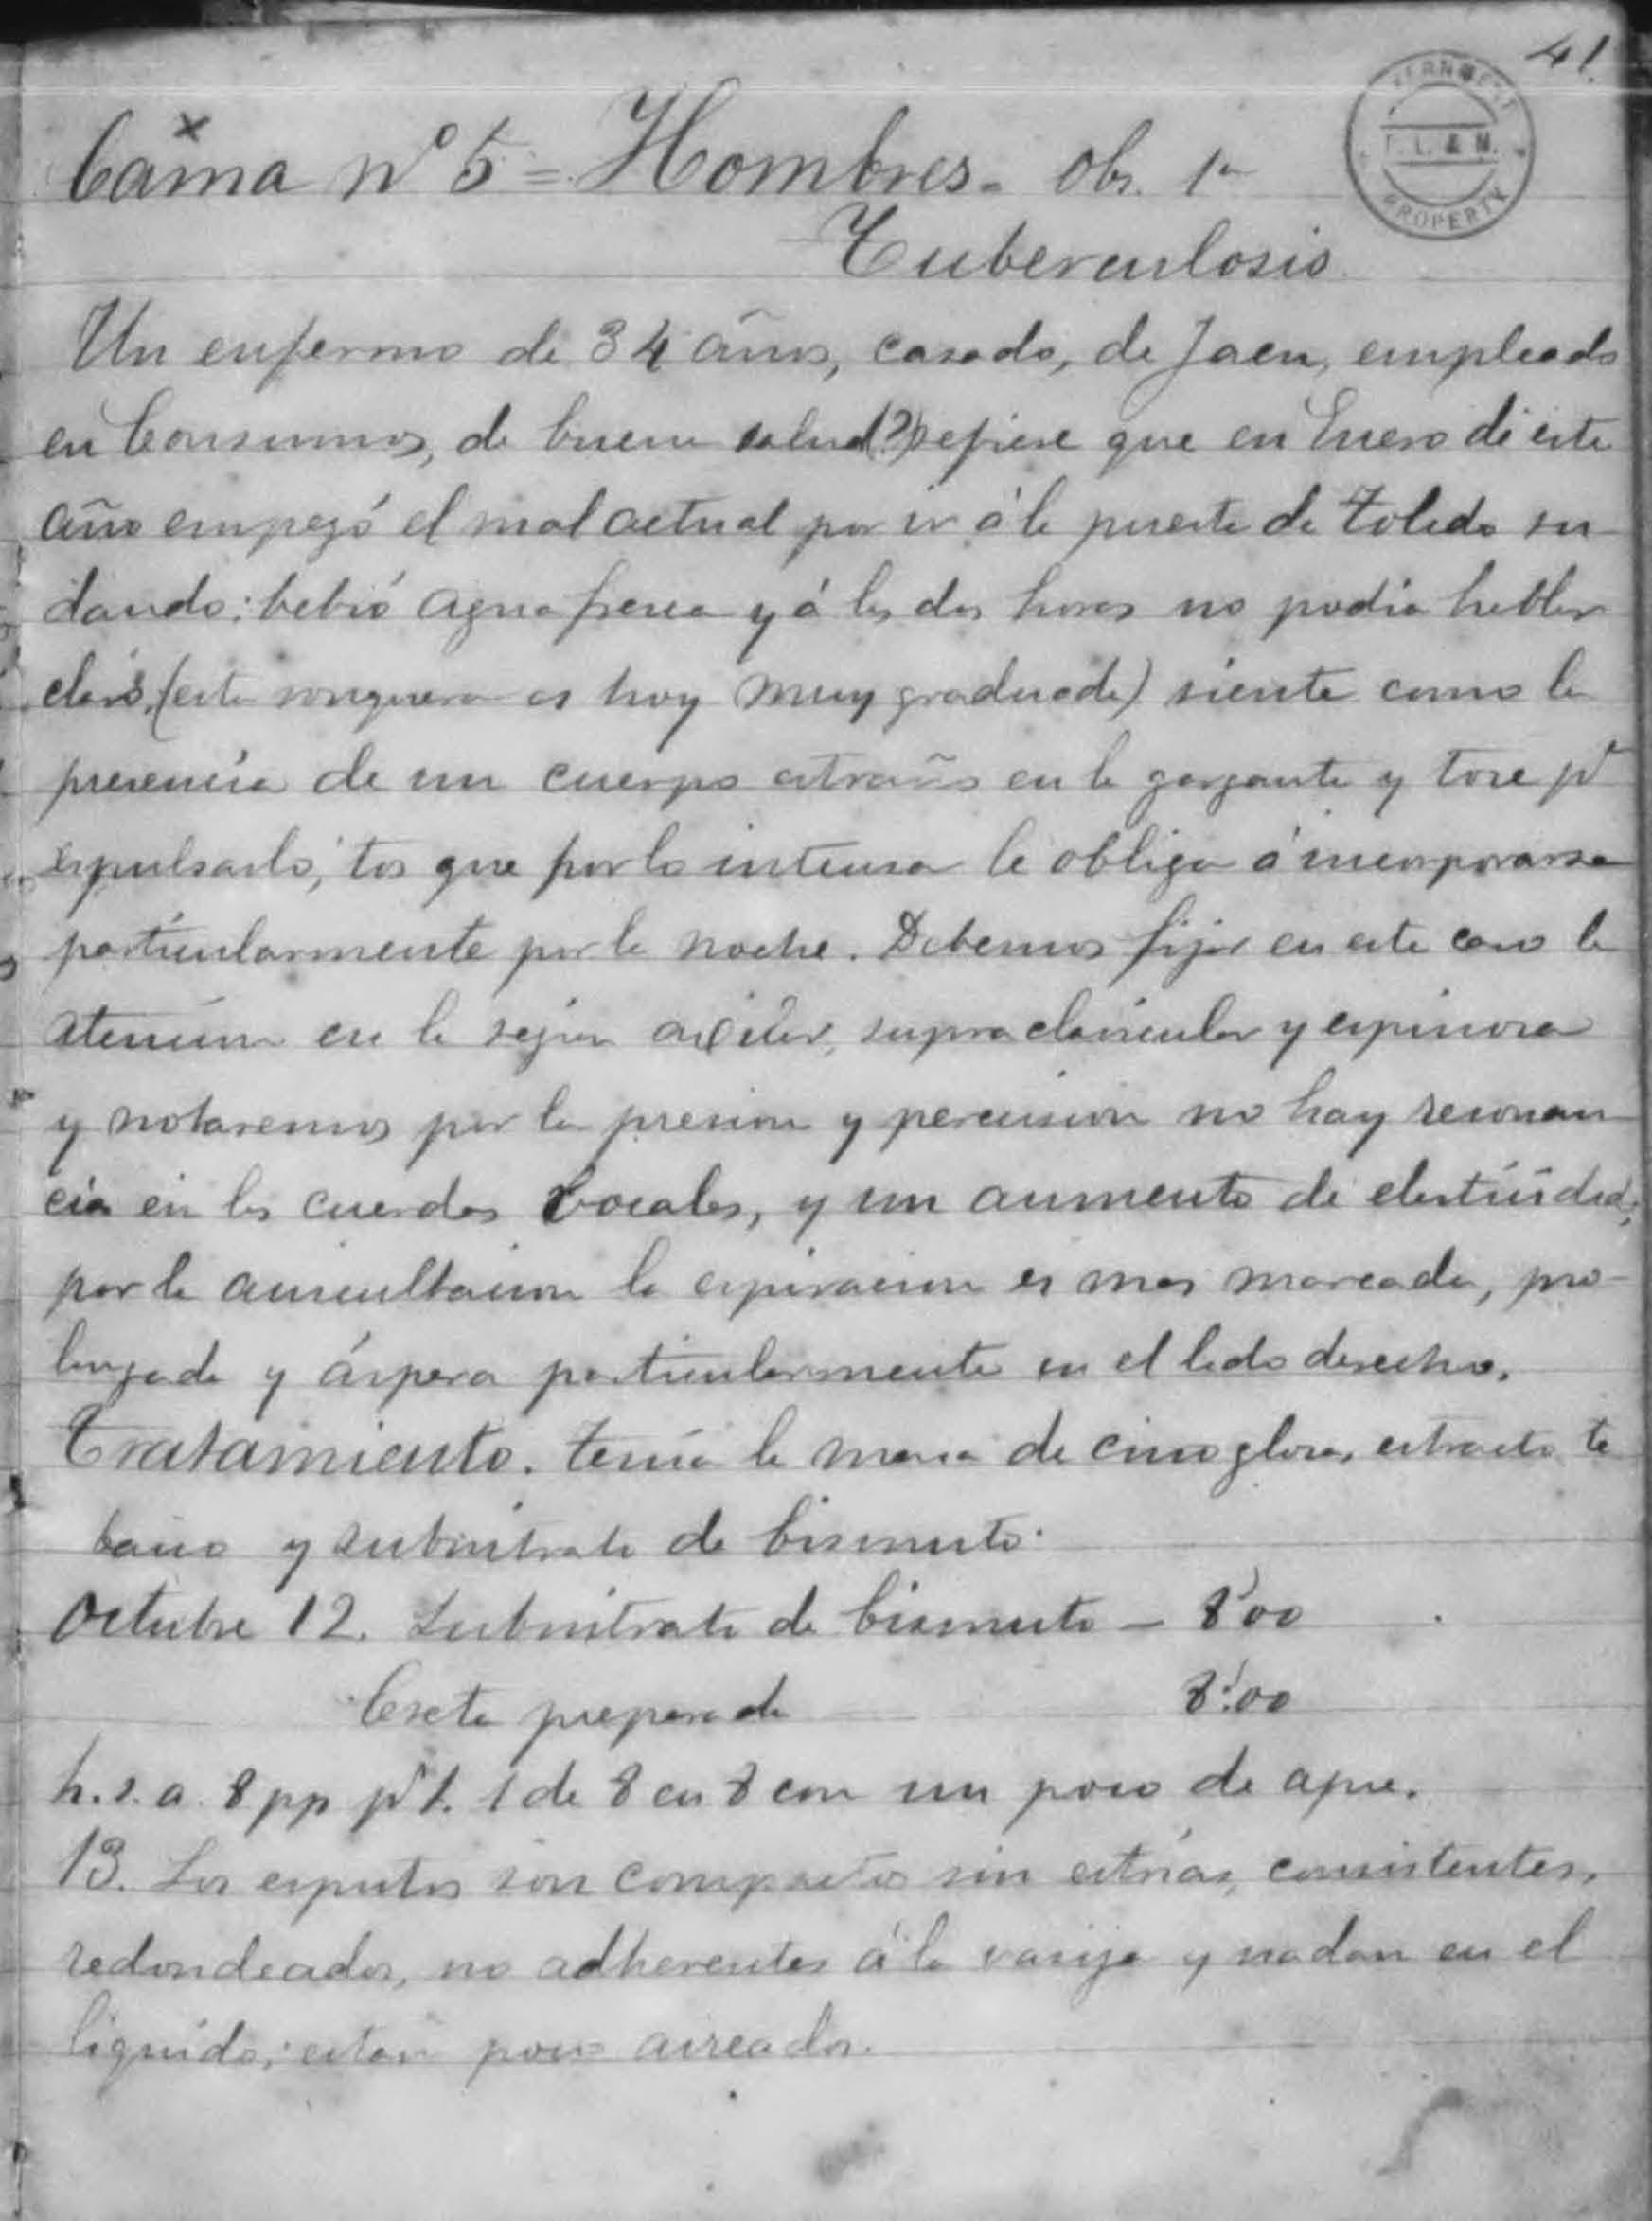 41.
GOVERNMENT
T. L. & M.
PROPERTY
Cama nº 5 = Hombres. Obs. 1ª
Tuberculosis
Un enfermo de 34 años, casado, de Jaen, empleado
en Consumos, de buena salud (?) refiere que en Enero de este
año empezó el mal actual por ir á la puerta de Toledo su
dando: bebió agua fresca y á las dos horas no podia hablar
claro, (esta ronquera es hoy muy graduada) siente como la
presencia de un cuerpo estraño en la garganta y tose pª
espulsarlo, tos que por lo intensa le obliga á incorporarse
particularmente por la noche. Debemos fijar en este caso la
atencion en la region axilar, supraclavicular y espinosa
y notaremos por la presion y percusion no hay resonan
cia en las cuerdas vocales, y un aumento de elasticidad;
por la auscultacion la espiracion es mas marcada, pro-
longada y áspera particularmente en el lado derecho.
Tratamiento. tenia la masa de cinoglosa, estracto te
baico y subnitrato de bismuto.
Octubre 12. Subnitrato de bismuto — 8'00
Creta preparada 8'00
h. s. a. 8 pp pª t. 1 de 8 en 8 con un poco de agua.
13. Los esputos son compactos sin estrias, consistentes,
redondeados, no adherentes á la vasija y nadan en el
liquido; estan poco aireados.